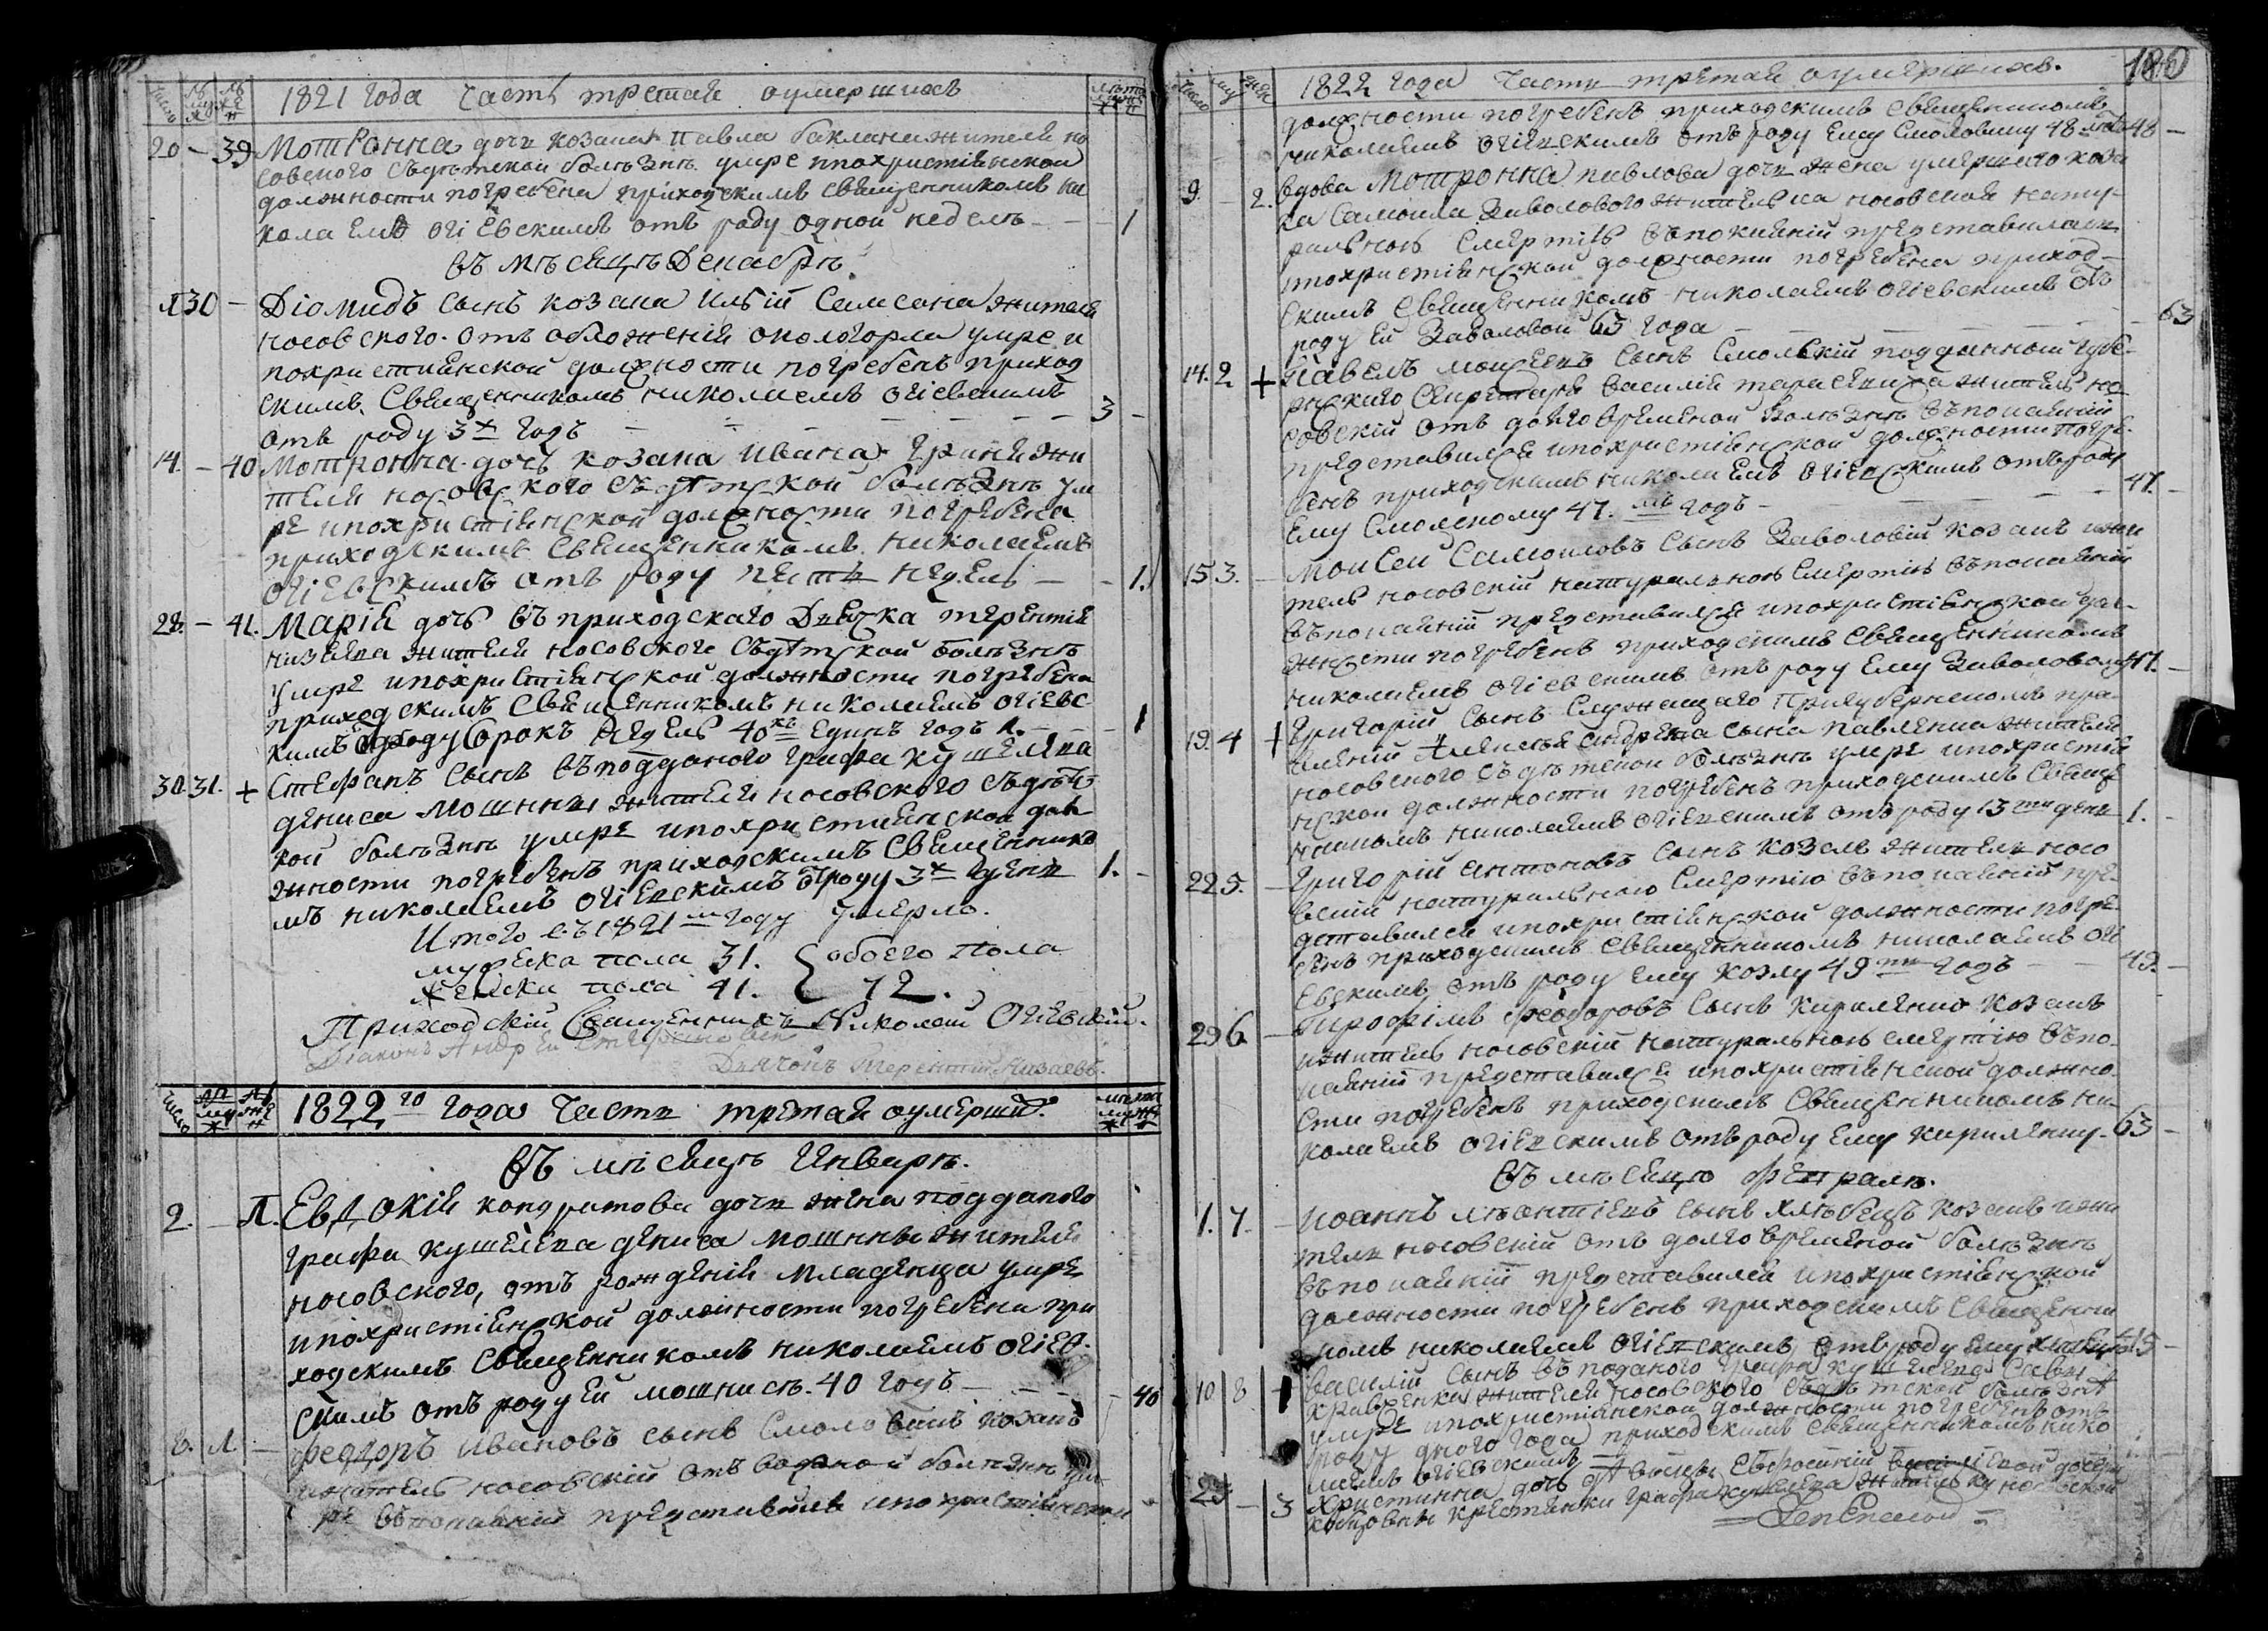 1821 года Часть третая оумершихъ
20 – 39 Мотронна дочь козака Павла баклана жителя но
совского съдѣтской болѣзнѣ умре ипохристіянской
должности погребена приходскимъ священникомъ ни
колаемъ огіевскимъ отъ роду одной неделѣ – 1
Въ мѣсецѣ Декабрѣ
30 – Діомидъ сынъ козака иліи Самсона жителя
носовского отъ обложенія окологорла умре и
похристиянской должности погребенъ приход
скимъ священникомъ николаемъ огіевскимъ
отъ роду 3х годъ – 3 –
14. – 40 Мотронна дочь козака ивана Гриня жи
теля носовского съдѣтской болѣзнѣ ум
ре ипохристіянской должности погребена
приходскимъ священникомъ николаемъ
огіевскимъ отъ роду пять недель – 1.
28. – 41. Марія дочь въприходскаго Дьячка терентія
низяева жителя носовского съдѣтской болѣзнѣ
умре ипохристіянской должности погребена
приходскимъ священникомъ николаемъ огіевс
кимъ отроду сорокъ недель 40 единъ годъ 1. – 1
30. 31. + Стефанъ сынъ въподданого графа кушелева
дениса мошнны жителя носовского съдѣтс
кой болѣзнѣ умре ипохристиянской дол
жности погребенъ приходскимъ священнико
мъ николаемъ огіевскимъ отроду 3х день 1. –
Итого въ 1821м году умерло.
мужеска пола 31. { обоего пола
женска пола 41. { 72.
Приходскій Священникъ Николай Огіевскій.
Діаконъ Андрей
Дьячокъ Терентий Низаевъ.
1822го года Часть третая оумерши
Въ мѣсецѣ Январѣ.
2. – Евдокія кондратова дочь жена подданого
графа кушелева дениса мошнны жителя
носовского, отъ рожденія младенца умре
ипохристіянской должности погребена при
ходскимъ священникомъ николаемъ огіев
скимъ отъ роду ей мошнисѣ 40 годъ – 40
Феодоръ ивановъ сынъ Смоловикъ козакъ
житель носовскій отъ водяной болѣзнѣ ум
ре въпокаяній представился ипохристіянской
1822 года Часть третая оумершихъ. 180
должности погребенъ приходскимъ священникомъ
николаемъ огіевскимъ отъ роду ему Смоловику 48 – 48 –
9. – 2. вдова Мотронна павлова дочь жена умершего коза
ка Самоила Заволового жителька носовская нату-
ральною смертію въпокаяній представилась
ипохристіянской должности погребена приход-
скимъ священникомъ николаемъ огіевскимъ отъ
роду ей Заволовой 63 года – 63
14. 2 + Павелъ моисеевъ сынъ Смольскій подданный губе-
рнского секретаря василія тарасевича житель но
совскій отъ долговременой болѣзнѣ въпокаяній
представился ипохристіянской должности погре-
бенъ приходскимъ николаемъ огіевскимъ отъ роду
ему Смолскому 47. мъ годъ – 47. –
15 3. – Моисей Самоиловъ сынъ Заволовій козакъ ижи
тель носовскій натуральною смертію въпокаяній
въпокаяній представился ипохристіянской дол-
жности погребенъ приходскимъ священникомъ
николаемъ огіевскимъ отъ роду ему Заволовому 47. –
19. 4 + Григорій сынъ служащаго Пригубернскомъ пра-
вленій Алексѣя Андреева сына павленка жителя
носовского съдѣтской болѣзнѣ умре ипохристія
нской должности погребенъ приходскимъ священ
никомъ николаемъ огіевскимъ отъ роду 13 ти день 1. –
22 5. – Григорій антоновъ сынъ козелъ житель носо
вскій натуральною смертію въпокаяній пре-
дставился ипохристіянской должности погре-
бенъ приходскимъ священникомъ николаемъ огі
евскимъ отъ роду ему козлу 49 ти годъ – 49. –
29 6 – Трофімъ Феодоровъ сынъ кириленко козакъ
ижитель носовскій натуральною смертію въпо-
каяній представился ипохристіянской должно-
сти погребенъ приходскимъ священникомъ ни-
колаемъ огіевскимъ отъ роду ему кириленку – 63 –
Въ мѣсецѣ Февралѣ.
1. 7 – иоаннъ леонтіевъ сынъ хлѣбецъ козакъ ижи
тель носовскій отъ долговременой болѣзнѣ
въпокаяній представился ипохристіянской
должности погребенъ приходскимъ священни
комъ николаемъ огіевскимъ отъ роду ему
10 8 + василій сынъ въподаного графа кушелева Савы
кравченка жителя носовского съдѣтской болѣзнѣ
умре ипохристіянской должности погребенъ отъ
роду дного года приходскимъ священникомъ нико
лаемъ огіевскимъ –
– 3 Христинна дочь дѣвицы Евфросиніи
крестянки графа кушелева жительки носовской